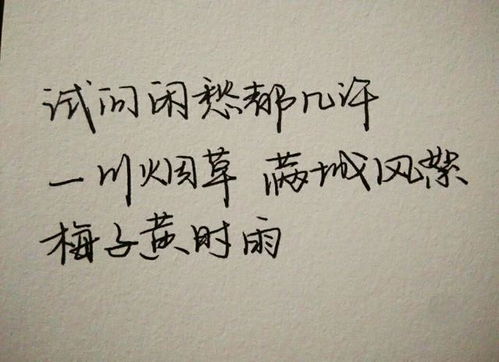 试问闲愁都几许
一川烟草 满城风絮
梅子黄时雨